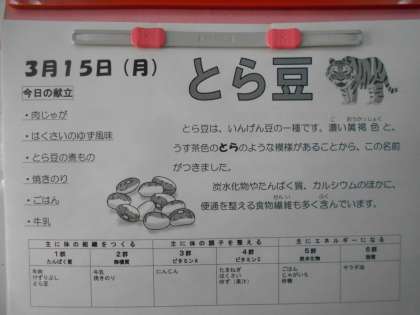 3月15日（月）
とら豆
今日の献立
・肉じゃが
・はくさいのゆず風味
・とら豆の煮もの
・焼きのり
・ごはん
・牛乳
とら豆は、いんげん豆の一種です。濃い黄褐色と、
うす茶色のとらのような模様があることから、この名前
がつきました。
炭水化物やたんぱく質、カルシウムのほかに、
便通を整える食物繊維も多く含んでいます。
主に体の組織をつくる
主に体の調子を整える
主にエネルギーになる
1群 2群 3群 4群 5群 6群
たんぱく質 無機質 ビタミンA ビタミンC 炭水化物 脂質
牛肉 牛乳 にんじん たまねぎ ごはん サラダ油
けずりぶし 焼きのり はくさい じゃがいも
とら豆 ゆず（果汁） 砂糖